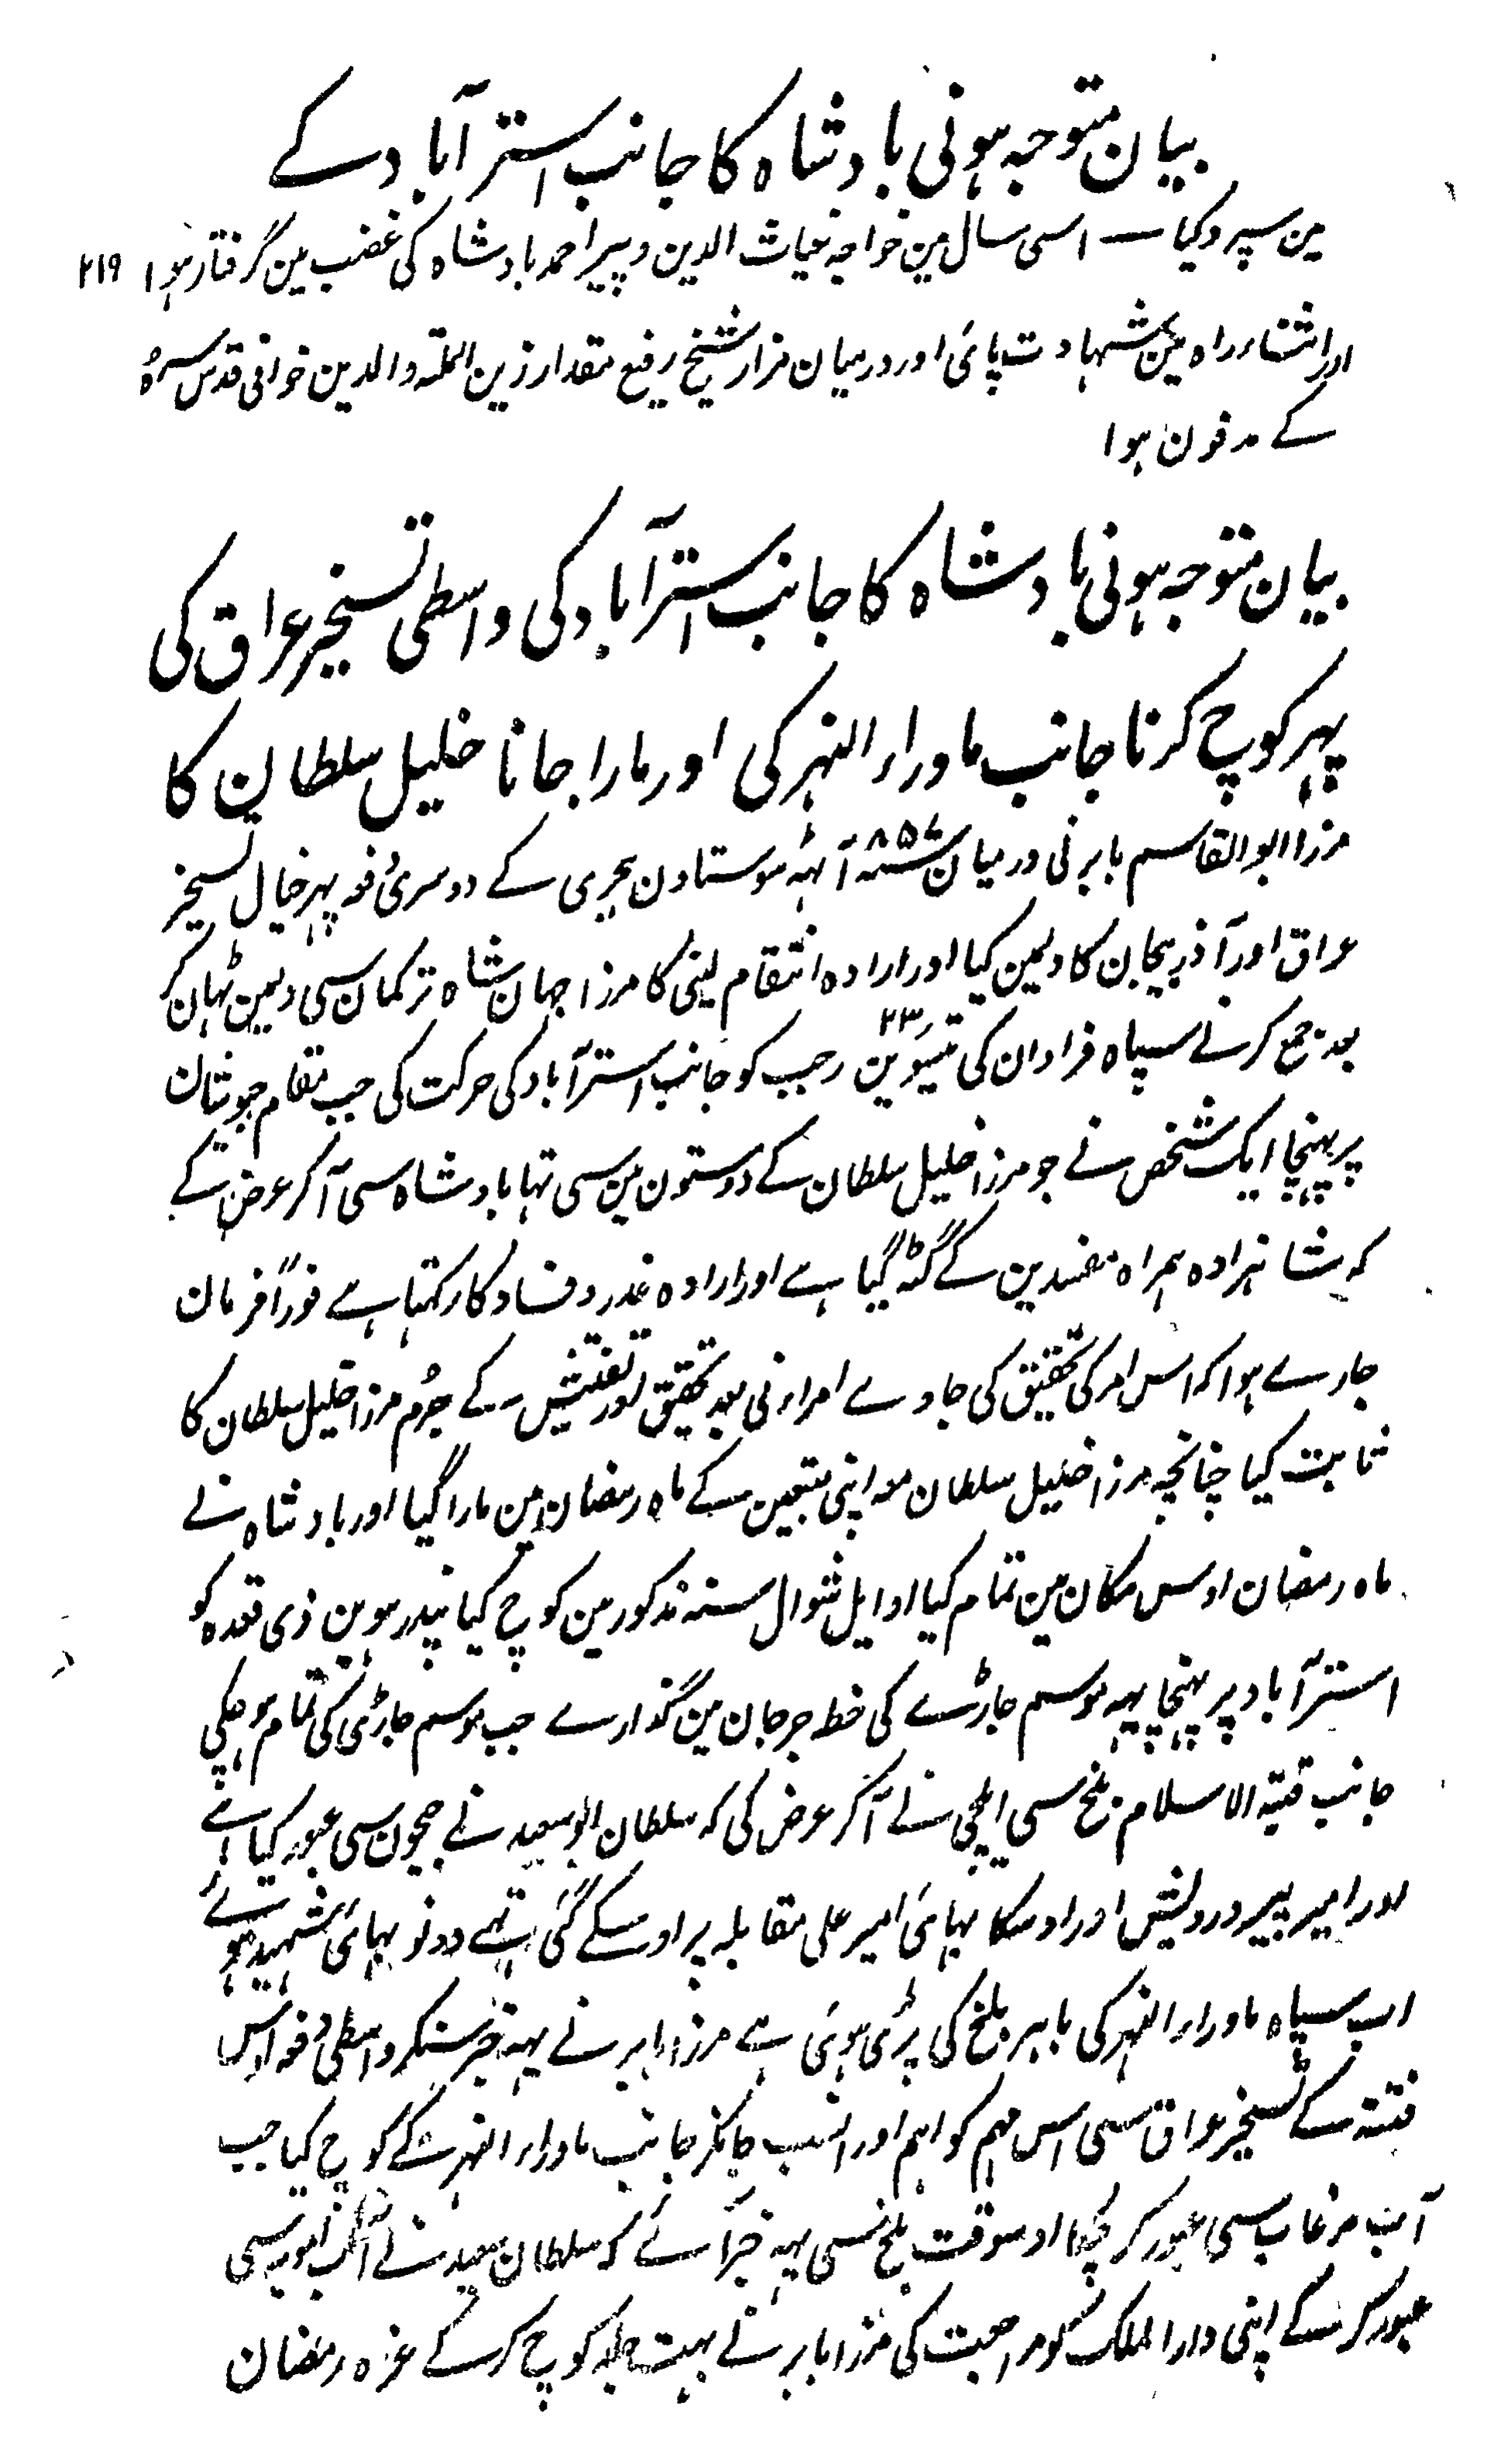 بیان متوجہ ہونی بادشاہ کا جانب استرآباد کے
مین سپرد کیا — اسی سال مین خواجہ غیاث الدین و پیر احمد بادشاہ کی غضب مین گرفتار ہوا ٢١٩
اور اثناء راہ مین شہادت پائی اور درمیان مزار شیخ رفیع مقدار زین الملۃ والدین خوافی قدس سرہُ
کے مدفون ہوا
بیان متوجہ ہونی بادشاہ کا جانب استرآباد کی واسطی تسخیر عراق کی
پہر کوچ کرنا جانب ماوراء النہر کی اور مارا جانا خلیل سلطان کا
مرزا ابوالقاسم بابر نی درمیان ٨٥٧ سنہ آٹہہ سو ستاون ہجری کے دوسری دفعہ پہر خیال تسخیر
عراق اور آذربیجان کا دلمین کیا اور ارادہ انتقام لینی کا مرزا جہان شاہ ترکمان سی دلمین ٹہان کر
بعد جمع کرنے سپاہ فراوان کی تیئیوین ٢٣ رجب کو جانب استرآباد کی حرکت کی جب مقام جوشان
پر پہنچا ایک شخص نے جو مرزا خلیل سلطان کے دوستون مین سی تہا بادشاہ سی آکر عرض کے
کہ شاہزادہ ہمراہ مفسدین کے گٹہ گیا ہے اور ارادہ غدر و فساد کا رکہتا ہے فوراً فرمان
جارے ہوا کہ اس امر کی تحقیق کی جاوے امراء نی بعد تحقیق اور تفتیش کے جُرم مرزا خلیل سلطان کا
ثابت کیا چنانچہ مرزا خلیل سلطان معہ اپنی متبعین کے ماہ رمضان مین مارا گیا اور بادشاہ نے
ماہ رمضان اوس مکان مین تمام کیا اوایل شوال سنہ مذکور مین کوچ کیا پندرہوین ذی قعدہ کو
استرآباد پر پہنچا پہہ موسم جاڑے کی خطہ جرجان مین گذارے جب موسم جاڑی کی تمام ہو چکی
جانب قبۃ الاسلام بلخ سی ایلچی نے آکر عرض کی کہ سلطان ابوسعید نے جیحون سی عبور کیا ہے
اور امیر پیر درویش اور اوسکا بہائی امیر علی مقابلہ پر اوسکے گئی تہے دونو بہائی شہید ہوئے
اب سپاہ ماوراء النہر کی باہر بلخ کی پڑی ہوئی ہے مرزا بابر نے یہہ خبر سنکر واسطی دفعہ اوس
فتنۃ کے تسخیر عراق سی اس مہم کو اہم اور انسب جانکر جانب ماوراء النہر کے کوچ کیا جب
آب مرغاب سی عبور کر چکا اوسوقت بلخ سی یہہ خبر آئے کہ سلطان سعید نے آب امویہ سی
عبور کر کے اپنی دار الملک کو مراجعت کی مرزا بابر نے بہت جلد کوچ کر کے غرہ رمضان